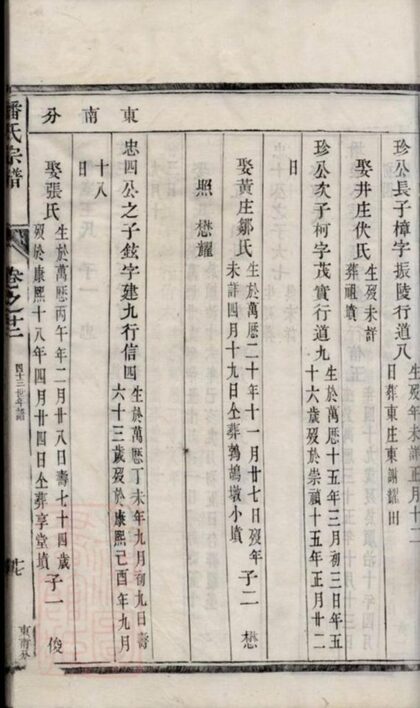 東南分
珍公長子樟字振陵行道八 生歿年未詳正月十二
日葬東庄東謝㵼田
娶井庄伏氏 生歿未詳
葬祖墳
珍公次子柯字茂實行道九 生於萬厯十五年三月初三日年五
十六歲歿於崇禎十五年正月廿二
日
娶黃庄鄒氏 生於萬厯二十年十一月廿七日歿年
未詳四月十九日仝葬鵓鴣墩小墳 子二 懋
照 懋耀
忠四公之子鉉字建九行信四 生於萬厯丁未年九月初九日壽
六十三歲歿於康熙己酉年九月
十八
日
娶張氏 生於萬厯丙午年二月廿八日壽七十四歲
歿於康熙十八年四月廿四日仝葬享堂墳 子一 俊
潘氏宗譜
卷之廿二
四十三世年譜
東南分